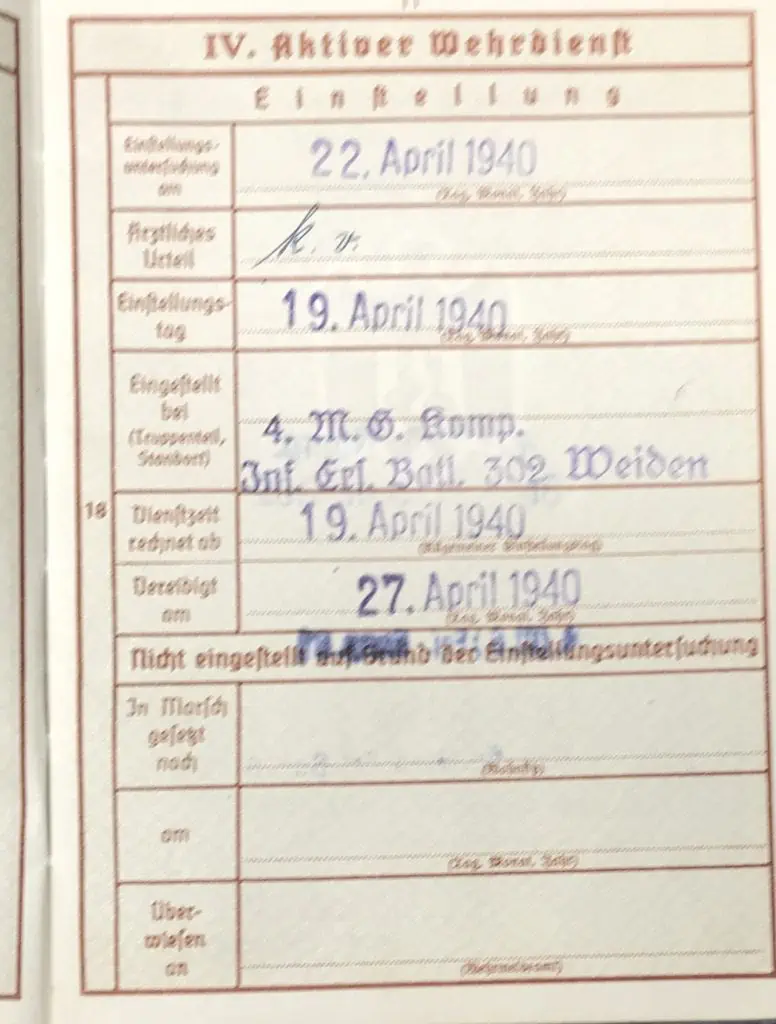 IV. Aktiver Wehrdienst
Einstellung
Einstellungs-
untersuchung
am
22. April 1940
(Tag, Monat, Jahr)
Ärztliches
Urteil
k. v.
Einstellungs-
tag
19. April 1940
(Tag, Monat, Jahr)
Eingestellt
bei
(Truppenteil,
Standort)
4. M. G. Komp.
Inf. Ers. Batl. 302 Weiden
18
Dienstzeit
rechnet ab
19. April 1940
Vereidigt
am
27. April 1940
(Tag, Monat, Jahr)
Nicht eingestellt auf Grund der Einstellungsuntersuchung
In Marsch
gesetzt
nach
am
(Tag, Monat, Jahr)
Über-
wiesen
an